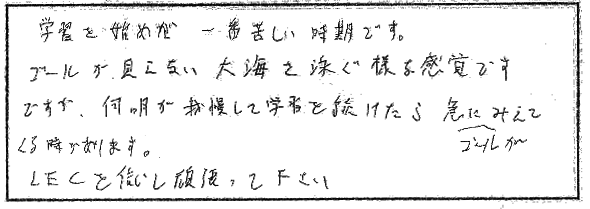 学習を始めが一番苦しい時期です。
ゴールが見えない大海を泳ぐ様な感覚です
ですが、何ヶ月か我慢して学習を続けたら 急にみえて
ゴールが
くる時があります。
LECを信じ頑張って下さい